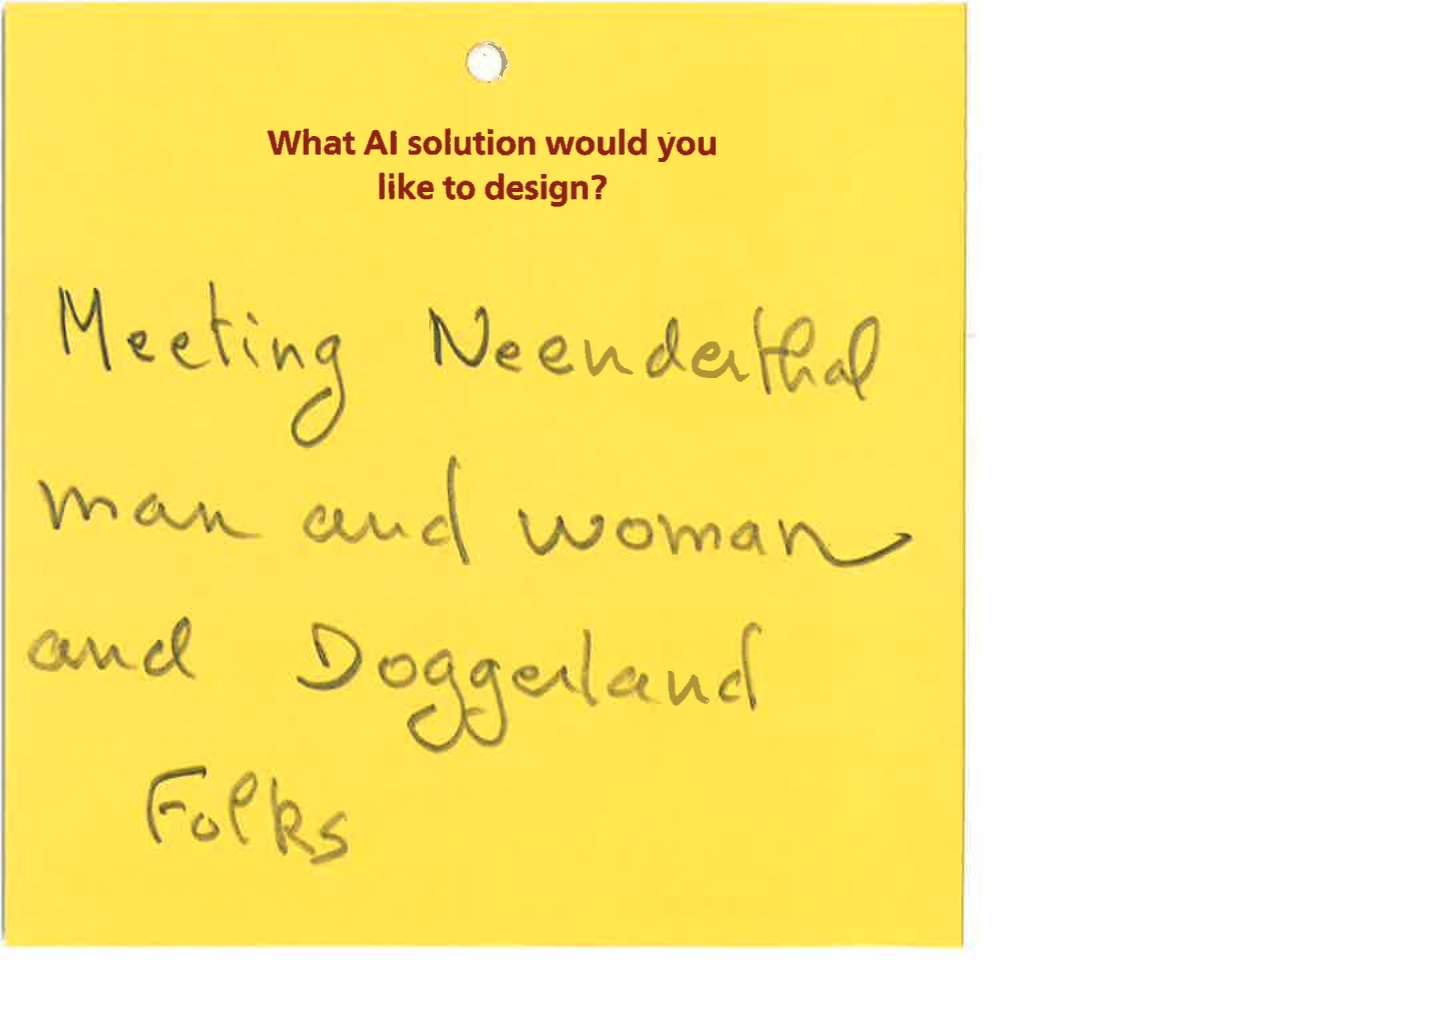 What AI solution would you
like to design?
Meeting Neenderthal
man and woman
and Doggerland
Folks